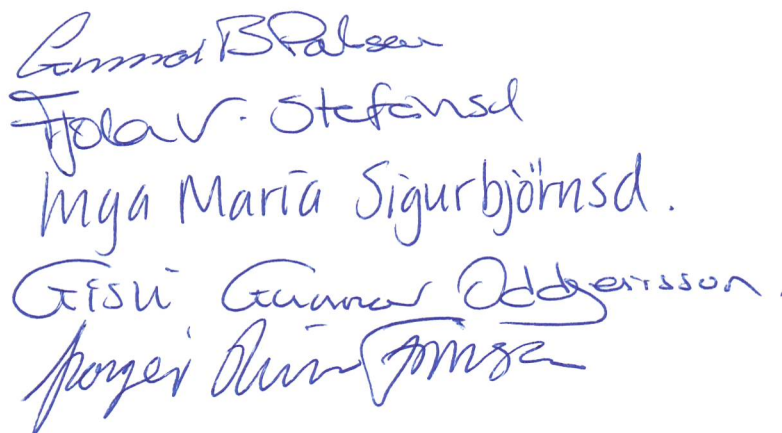 Gunnar B Pálsson
Fjóla V. Stefánsd
Inga María Sigurbjörnsd.
Gísli Gunnar Oddgeirsson.
Þorgeir Rúnar Finnsson